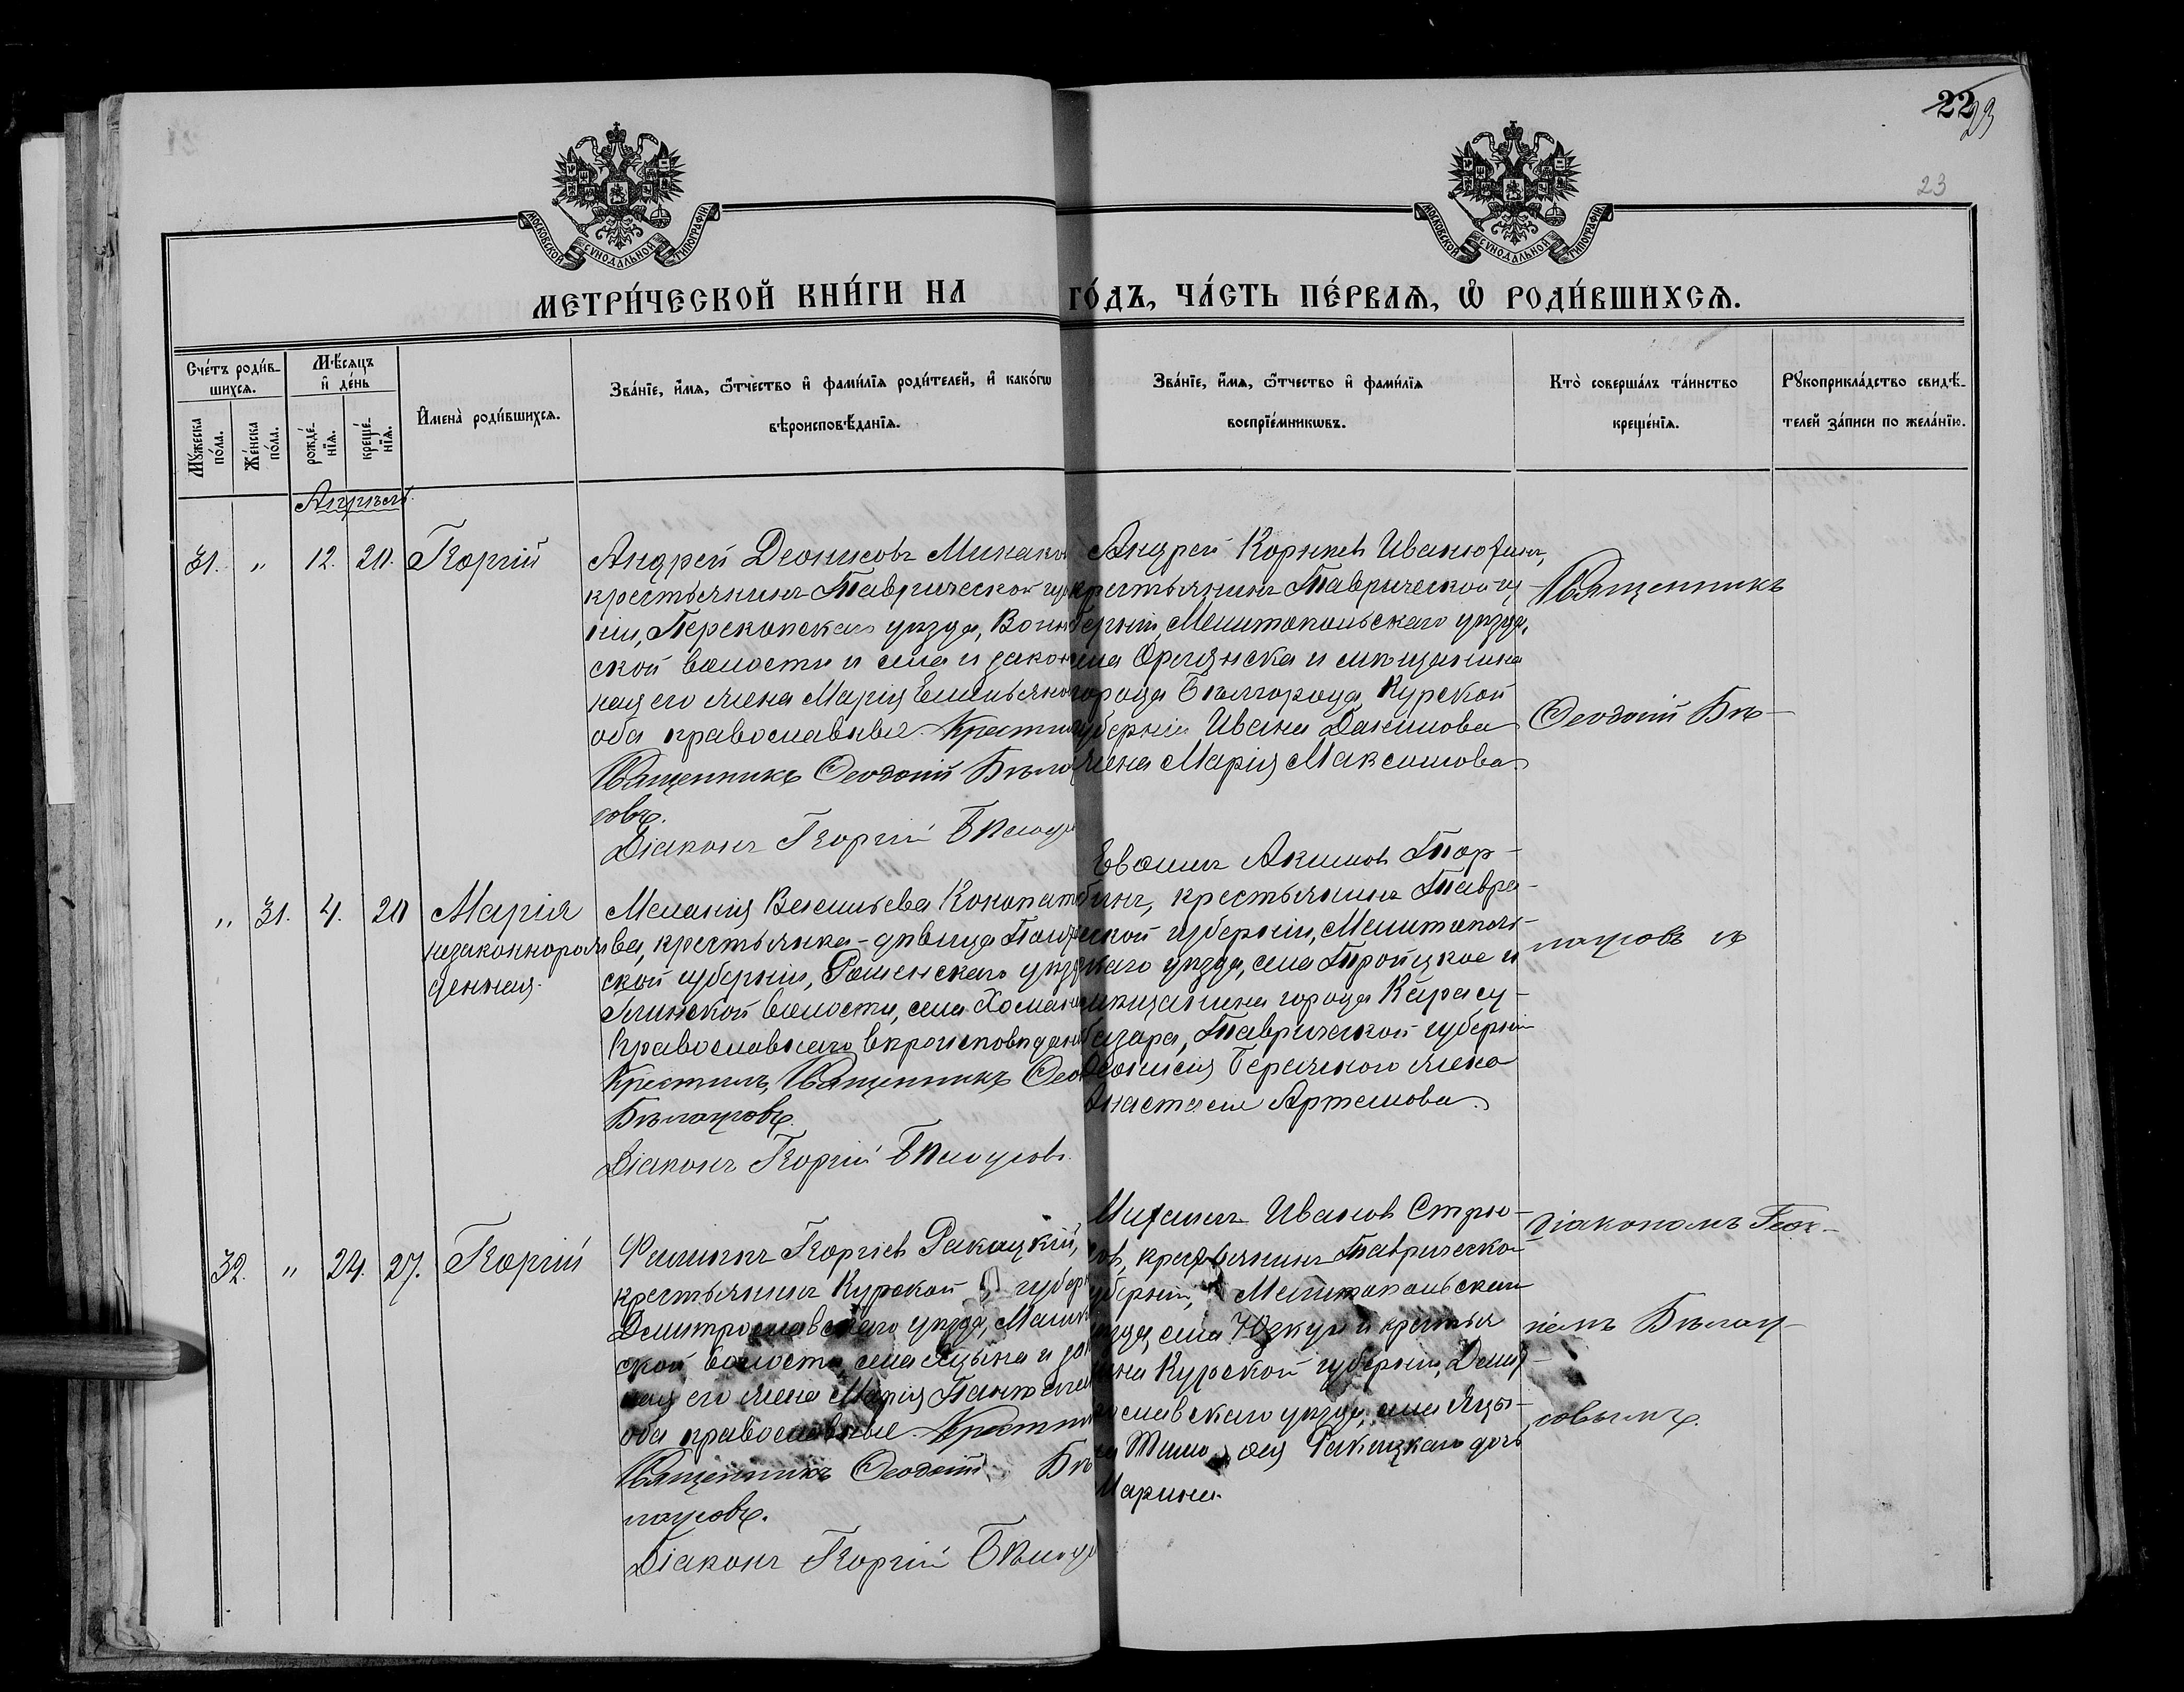 22 23
23
МОСКОВСКОЙ СѴНОДАЛЬНОЙ ТИПОГРАФІИ
МОСКОВСКОЙ СѴНОДАЛЬНОЙ ТИПОГРАФІИ
МЕТРИ́ЧЕСКОЙ КНИ́ГИ НА ГО́ДЪ, ЧА́СТЬ ПЕ́РВАѦ, Ѽ РОДИ́ВШИХСѦ.
Сче́тъ роди́в-
шихсѧ.
Мꙋ́жеска
по́ла.
Же́нска
по́ла.
Мѣ́сѧцъ
и҆ де́нь
рожде́-
нїѧ.
креще́-
нїѧ.
И҆мена̀ роди́вшихсѧ.
Зва́нїе, и҆́мѧ, ѻ҆́тчество и҆ фами́лїѧ роди́телей, и҆ како́гѡ
вѣроисповѣ́данїѧ.
Зва́нїе, и҆́мѧ, ѻ҆́тчество и҆ фами́лїѧ
воспрїе́мникѡвъ.
Кто̀ соверша́лъ та́инство
креще́нїѧ.
Рꙋкоприкла́дство свидѣ́-
телей за́писи по жела́нїю.
Апрѣль
31. " 12. 20. Георгій
Андрей Деонисовъ Минаков
крестьянинъ Таврической губер
ніи, Перекопскаго уѣзда, Воин
ской волости и села и закон
ная его жена Марія Емельянова
оба православные. Крестилъ
Священникъ Ѳеодосій Бѣло
совъ.
Діаконъ Георгій Бѣлоус
Андрей Корнѣев
крестьянинъ Таврической гу-
берніи, Мелитопольскаго уѣзда,
села и мѣщанина
города Бѣлгорода Курской
губерніи Ивана
жена Марія Максимова
Священникъ
Ѳеодосій Бѣ-
" 31. 4. 20 Марія
незаконнорож
денная.
Меланія Васильева Конопат
ва, крестьянка-дѣвица Полтав
ской губерніи, Роменскаго уѣзда
Глинской волости, села
православнаго вѣроисповѣданія
Крестилъ, Священникъ Ѳеод
Бѣлоусовъ.
Діаконъ Георгій Бѣлоусовъ.
Акимов Тор-
бинъ, крестьянинъ Таври-
ческой губерніи, Мелитополь-
скаго уѣзда, села Тройцкое и
мѣщанина города Карасу-
базара, Таврической губерніи
Деонисія жена
Анастасія Артемова.
лоусовъ съ
32. " 24. 27. Георгій
Филиппъ Георгіев Ракицкій,
крестьянинъ Курской губерн
Дмитрославскаго уѣзда,
ской волости, села Яцына и зак
ная его жена Марія Пантелей
оба православные. Крестил
Священникъ Ѳеодосій Бѣ
лоусовъ.
Діаконъ Георгій Бѣлоус
Михаилъ Иванов Стрю-
ков, крестьянинъ Таврической
губерніи, Мелитопольскаго
уѣзда, села Юзкуи и крестья
нина Курской губерніи, Дмит-
рославскаго уѣзда, села Яцы-
на Тимоѳея Ракицкаго дочь
Марина.
діакономъ Геор-
гіемъ Бѣлоу-
совымъ.